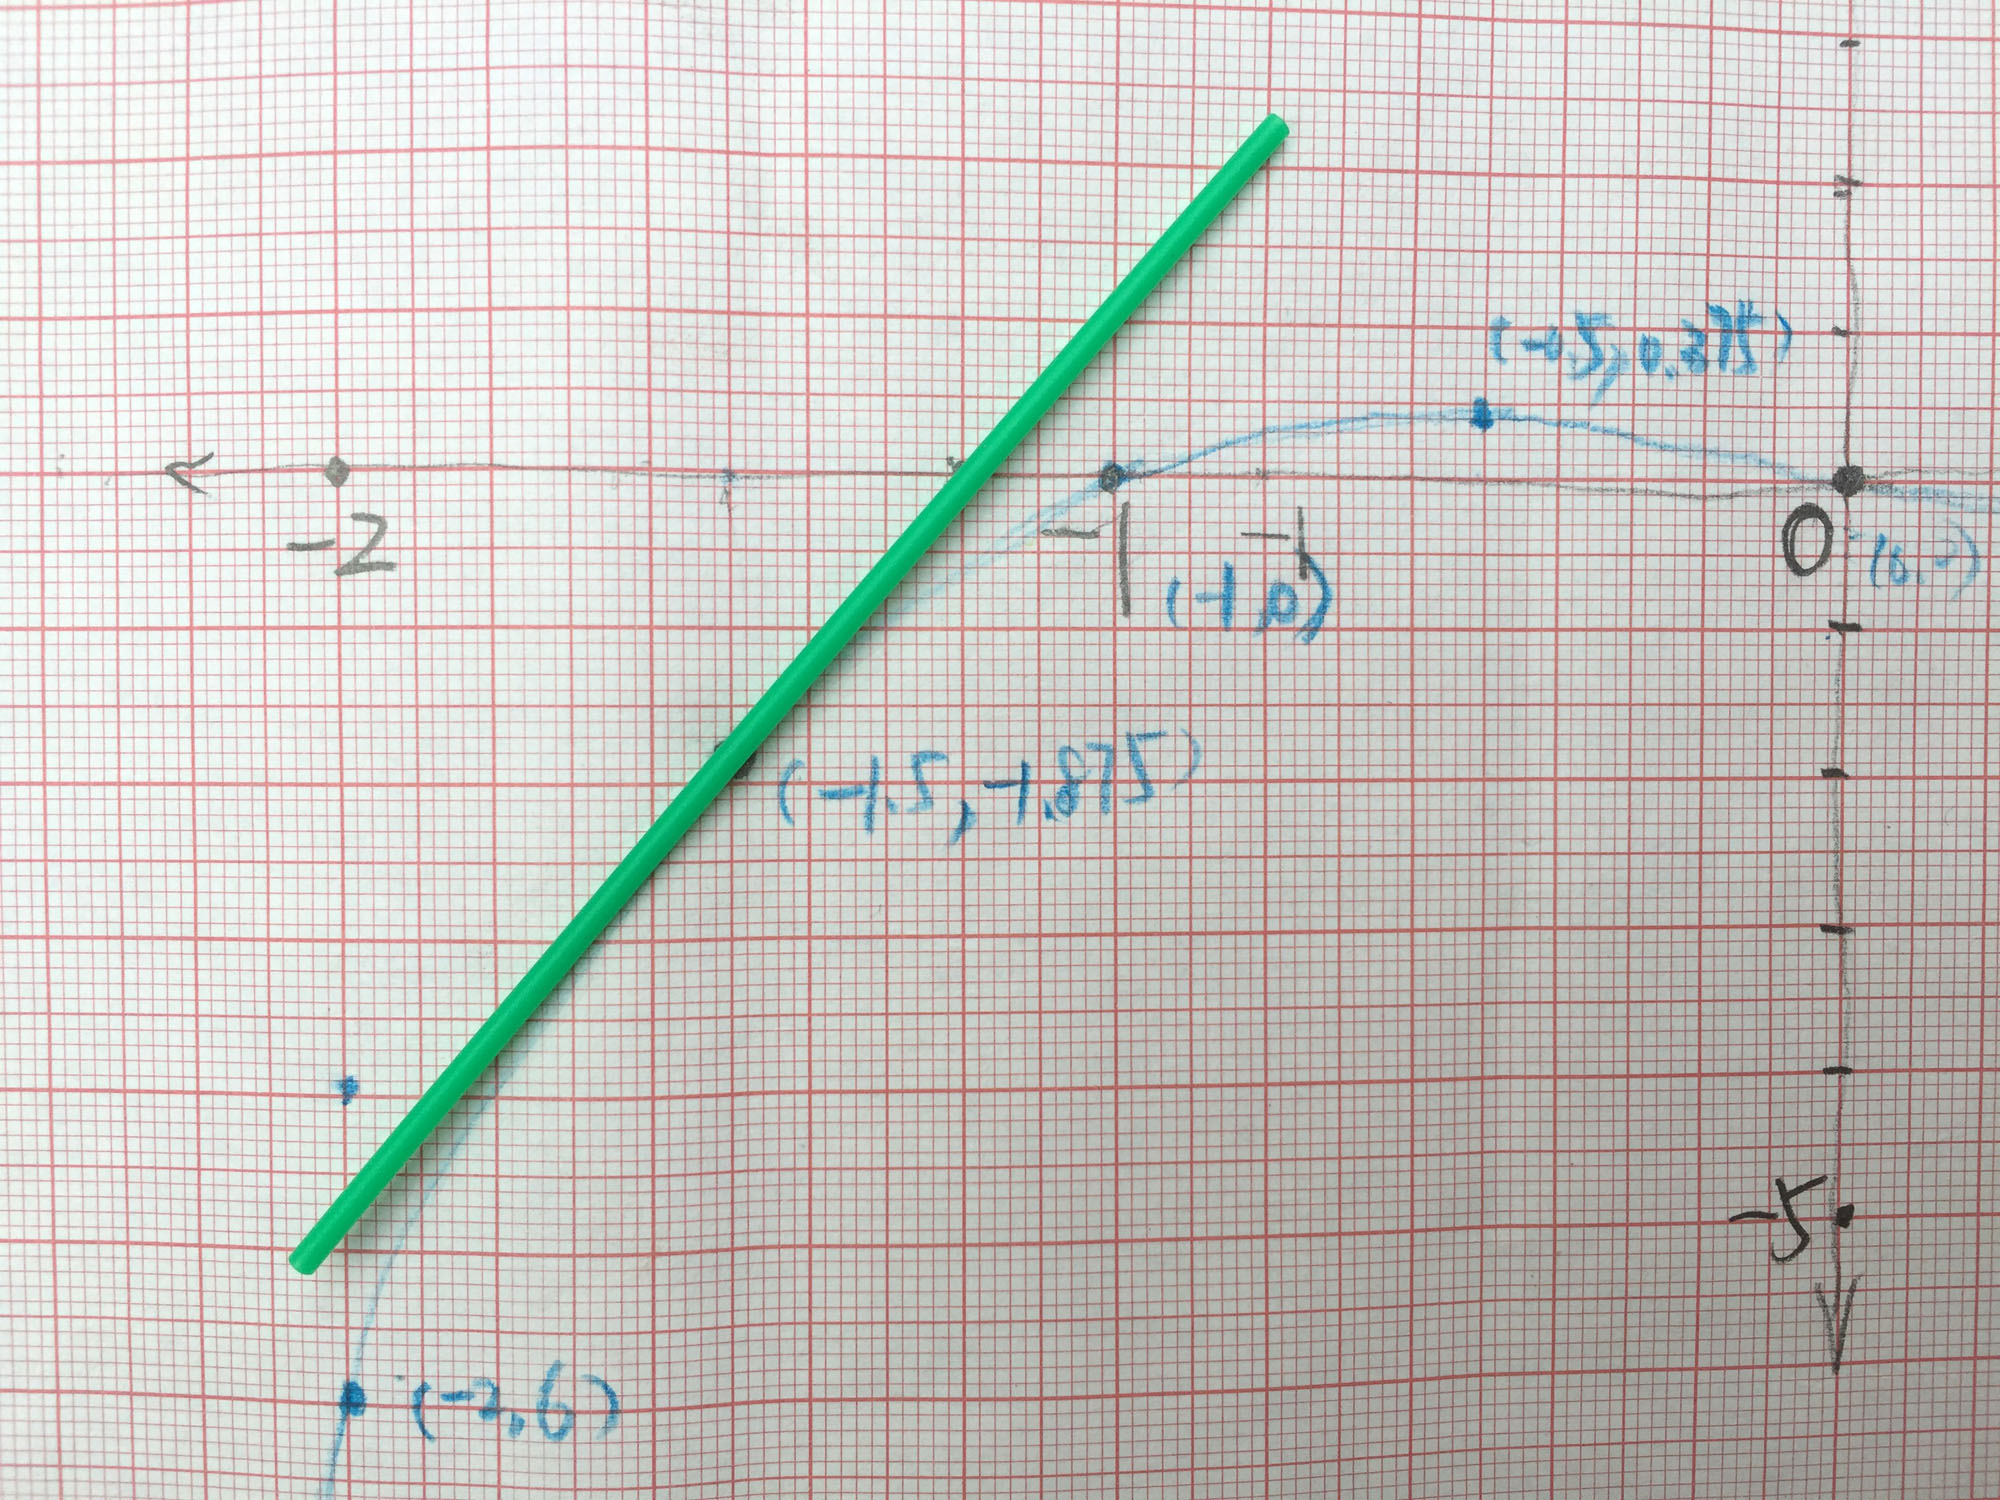 (-0.5, 0.375)
-2
-1
-1
0
(-1,0)
(-1.5, -1.875)
-5
(-2,6)